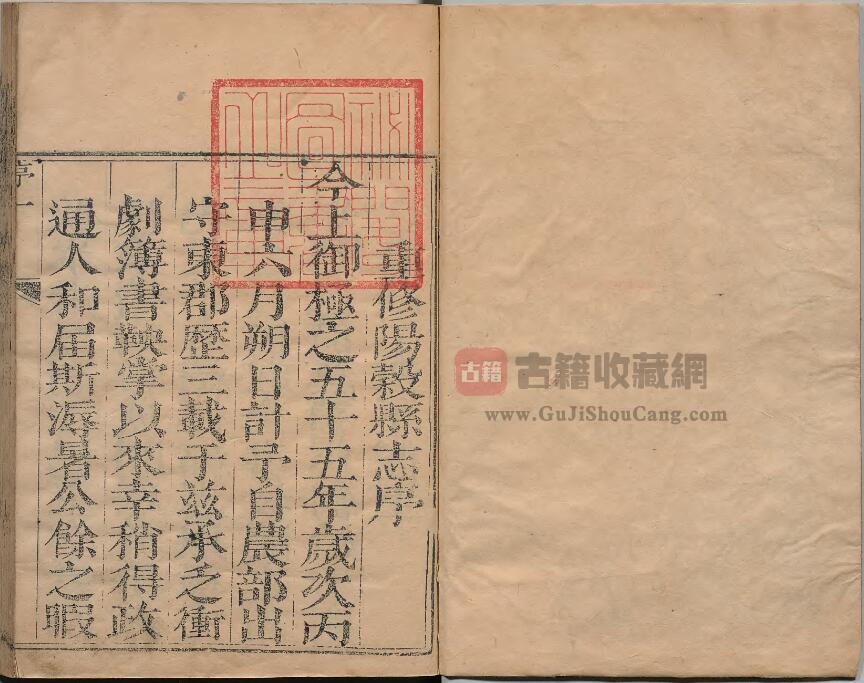 重修陽穀縣志序
今上御極之五十五年歲次丙
申六月朔日計予自農部出
守東郡歷三載于茲承乏衝
劇簿書鞅掌以來幸稍得政
通人和屆斯溽暑公餘之暇
序 一
古籍 古籍收藏網
www.GuJiShouCang.com